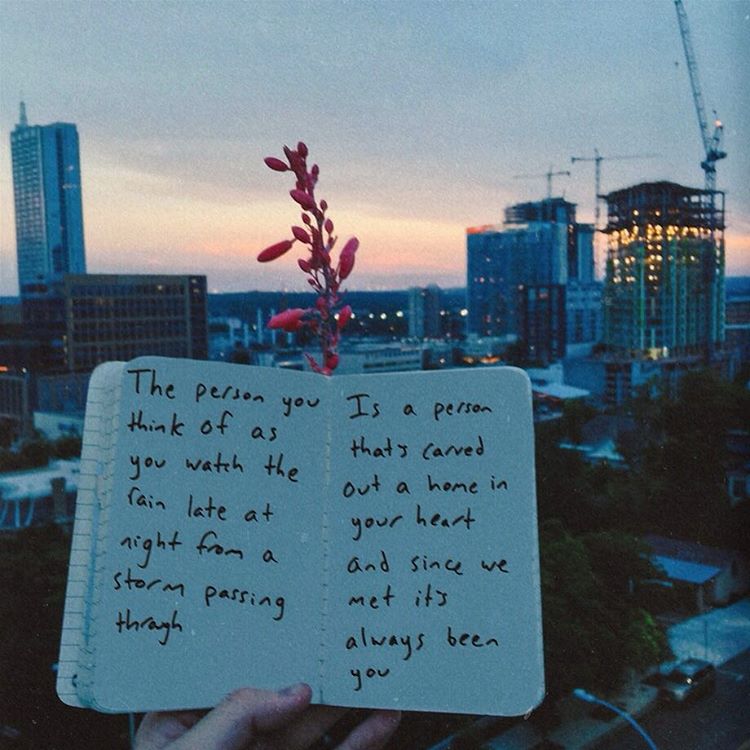 The person you
think of as
you watch the
rain late at
night from a
storm passing
through
Is a person
that's carved
out a home in
your heart
and since we
met it's
always been
you